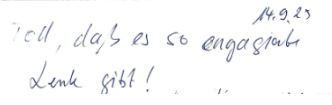 14.9.23
Toll, daß es so engagierte
Leute gibt!